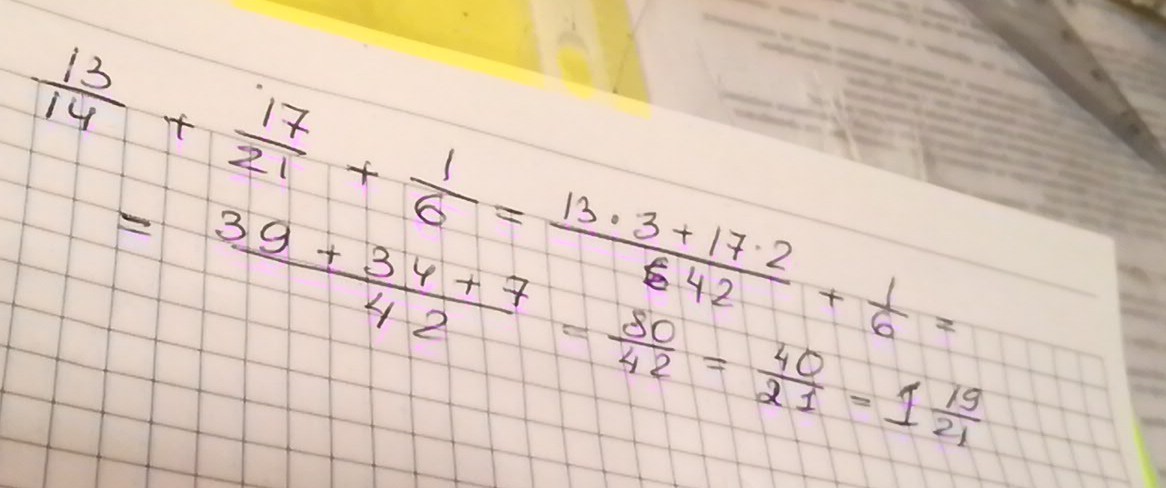 13/14 + 17/21 + 1/6 = (13·3+17·2)/42 + 1/6 =
= (39+34+7)/42 = 80/42 = 40/21 = 1 19/21